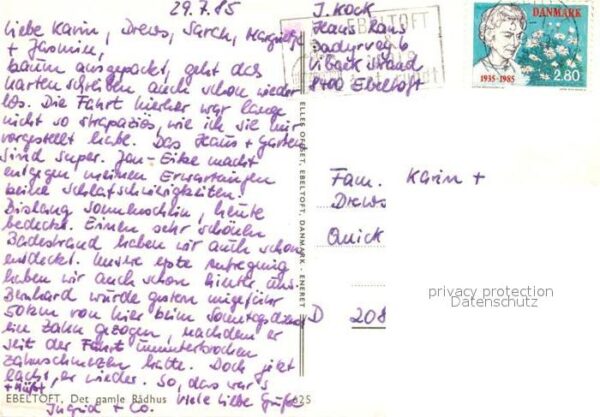 29.7.85
Liebe Karin, Drews, Sarah, Margitje
+ Jasmin,
kaum ausgepackt, geht das
Kartenschreiben auch schon wieder
los. Die Fahrt hierher war lange
nicht so strapaziös, wie ich sie mir
vorgestellt habe. Das Haus + Garten
sind super. Jan-Eike macht
entgegen meinen Erwartungen
keine Schlafschwierigkeiten.
Bislang Sonnenschein, heute
bedeckt. Einen sehr schönen
Badestrand haben wir auch schon
entdeckt. Unsere erste Aufregung
haben wir auch schon hinter uns.
Bernhard wurde gestern ungefähr
50 km von hier beim Sonntagsdienst
ein Zahn gezogen, nachdem er
seit der Fahrt ununterbrochen
Zahnschmerzen hatte. Doch jetzt
lacht er wieder. So, das war's
Viele liebe Grüße
Ingrid + Co.
EBELTOFT, Det gamle Rådhus
62S
ELLES OFFSET, EBELTOFT, DANMARK - ENERET
J. Kock
Haus Rans
6
Vibæk Strand
8400 Ebeltoft
EBELTOFT
DANMARK
1935-1985
2.80
Fam. Karin +
Drews
Quick
D 208
privacy protection
Datenschutz